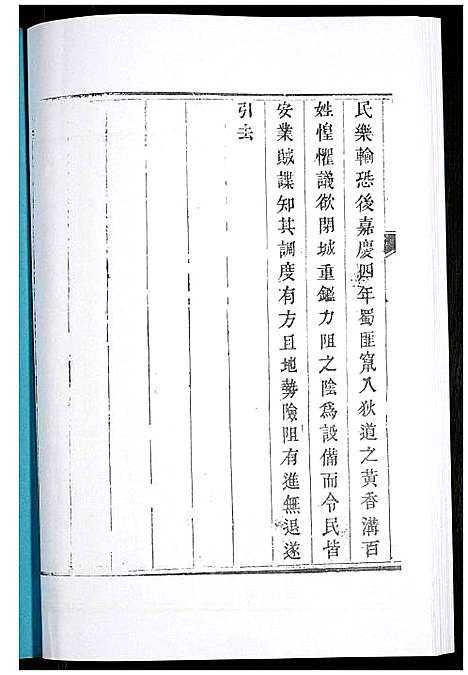 民樂輸恐後嘉慶四年蜀匪竄入狄道之黃香溝百
姓惶懼議欲閉城重鑑力阻之陰爲設備而令民皆
安業賊諜知其調度有方且地勢險阻有進無退遂
引去